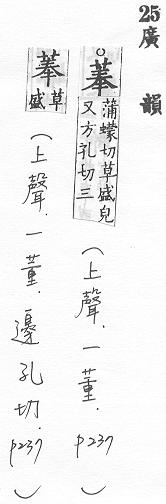 25廣韻
○菶蒲蠓切草盛皃又方孔切三(上聲.一董.p237)
菶草盛(上聲.一董.邊孔切.p237)